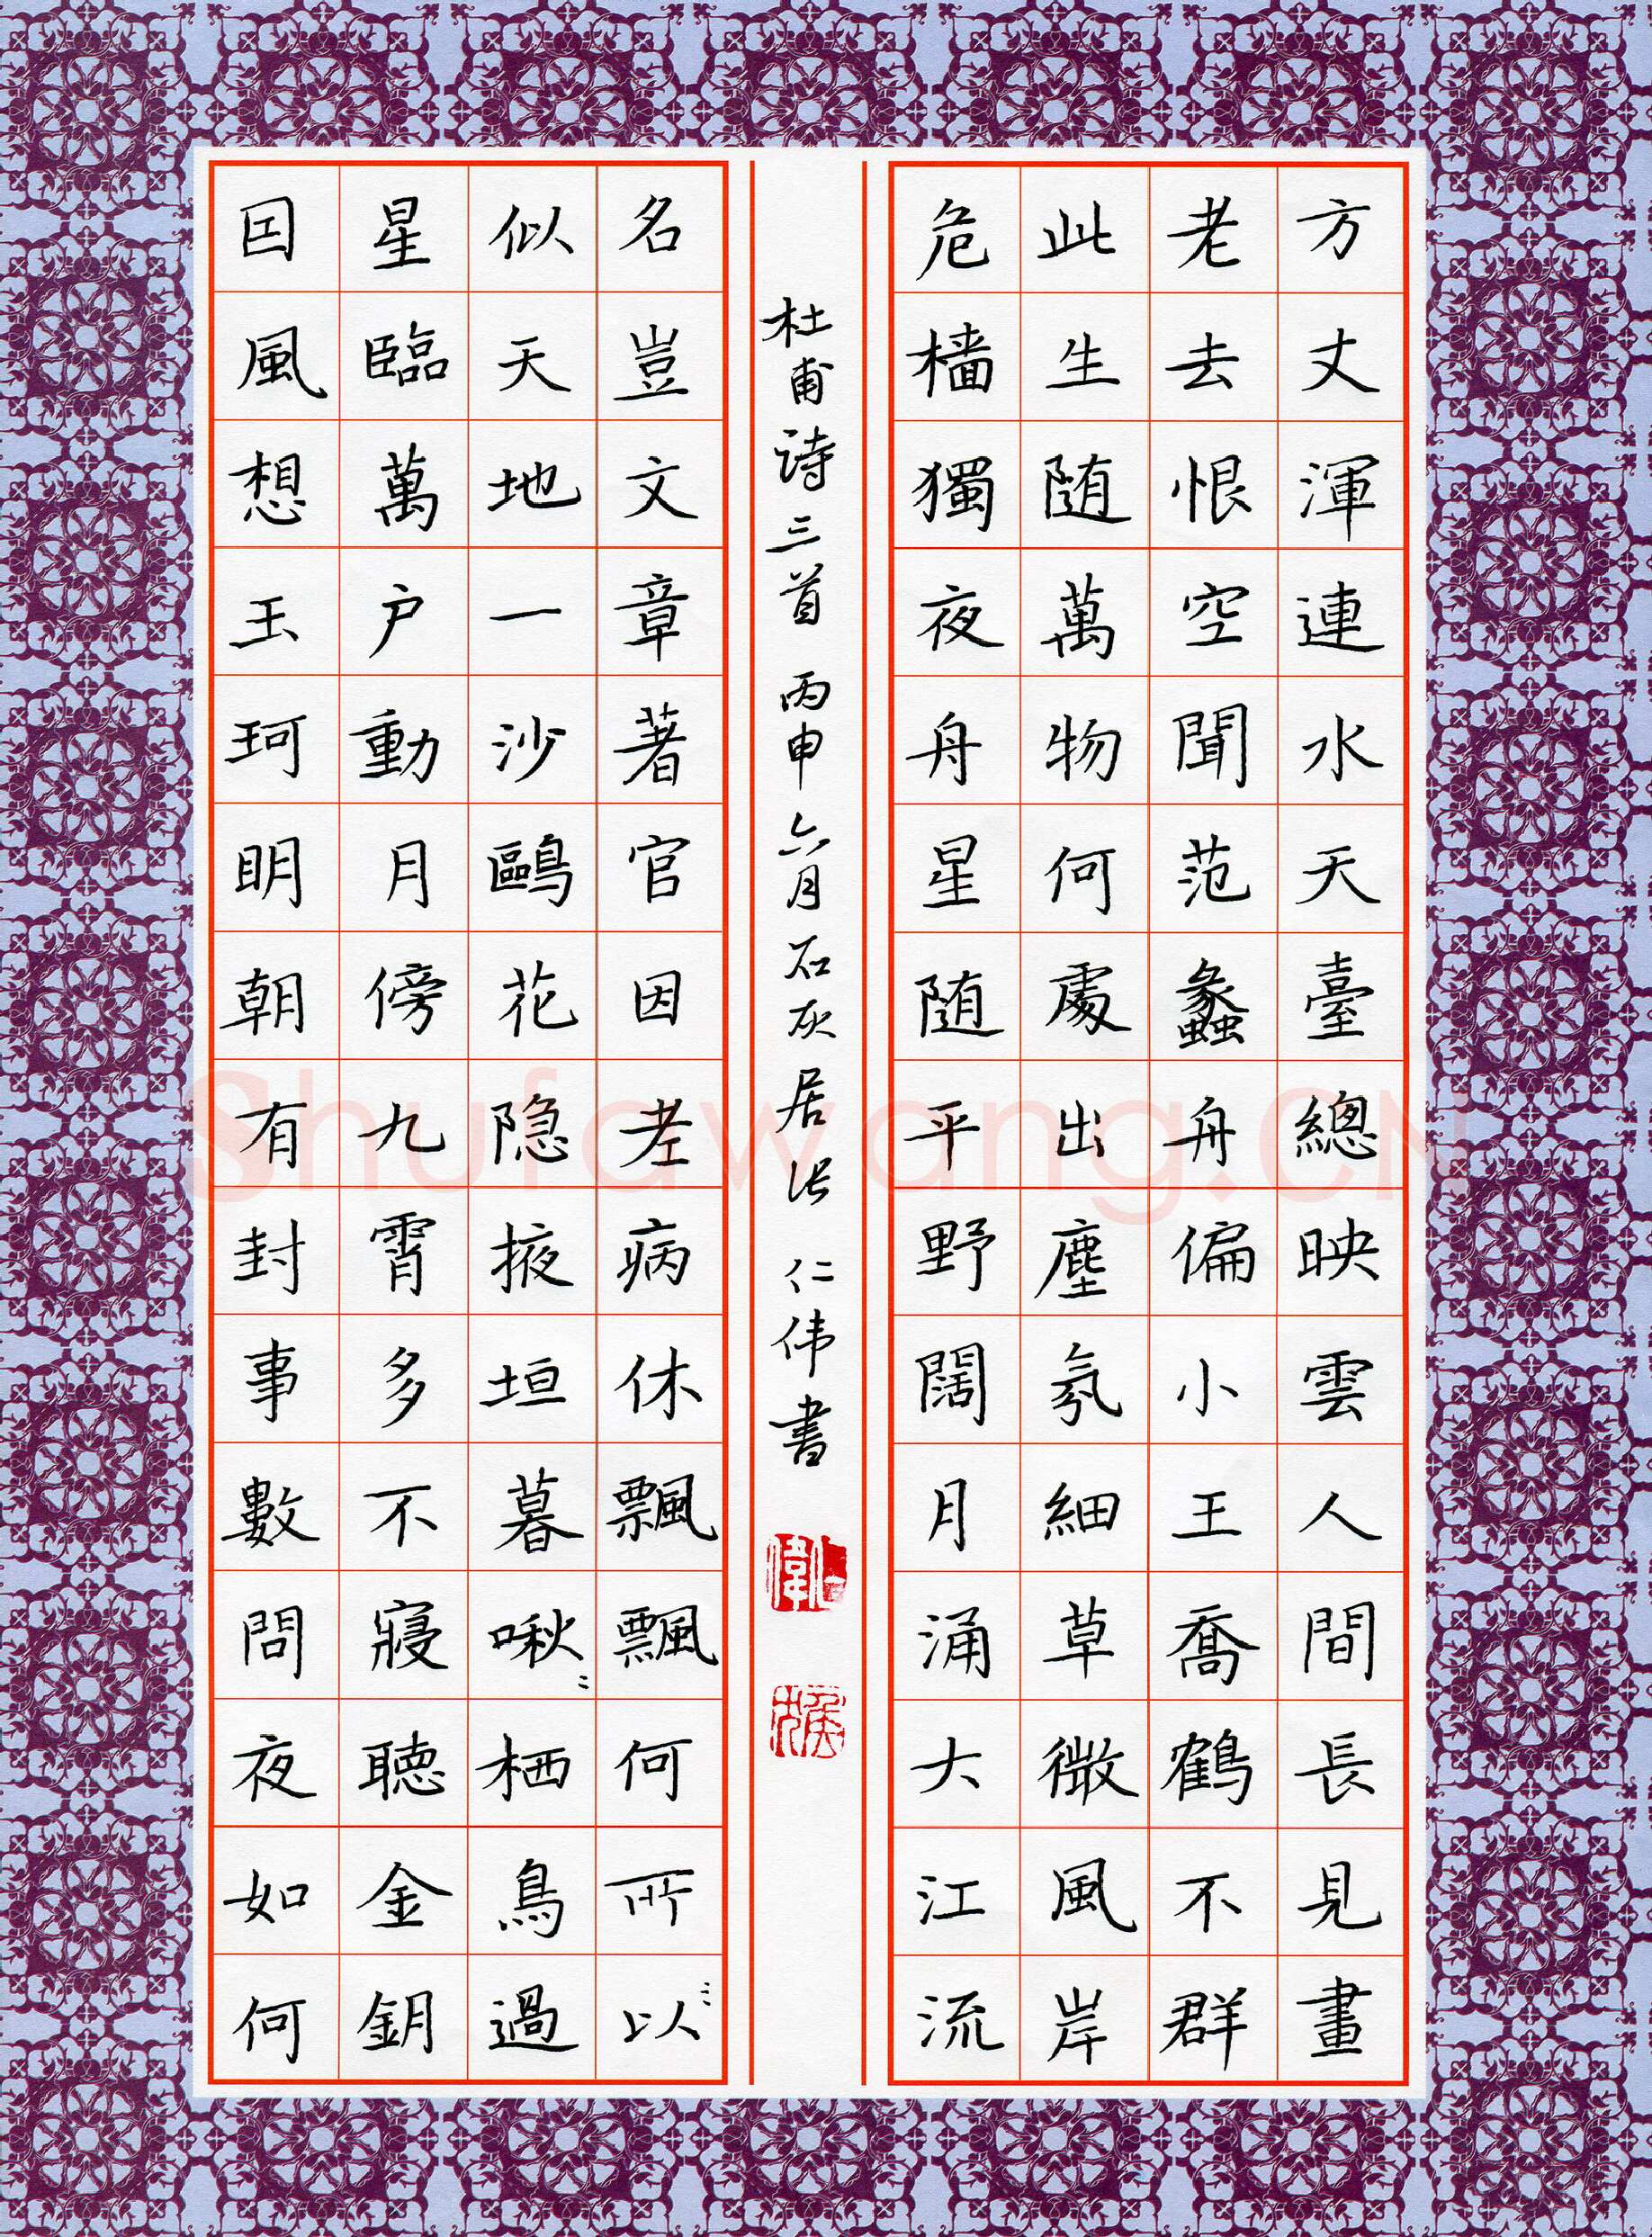 方丈渾連水天臺總映雲人間長見畫
老去恨空聞范蠡舟偏小王喬鶴不群
此生随萬物何處出塵氛細草微風岸
危檣獨夜舟星随平野闊月涌大江流
杜甫诗三首 丙申六月石灰居张仁伟書
仁偉
名豈文章著官因老病休飄飄何所以
似天地一沙鷗花隐掖垣暮啾〻栖鳥過
星臨萬户動月傍九霄多不寢聽金鈅
囙風想玉珂明朝有封事數問夜如何
Shufawang.CN